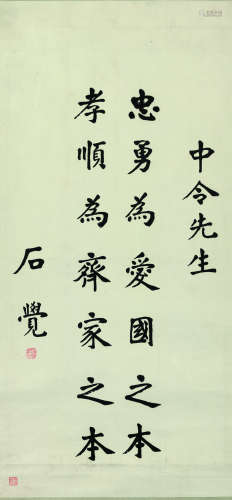 中令先生
忠勇為愛國之本
孝順為齊家之本
石覺